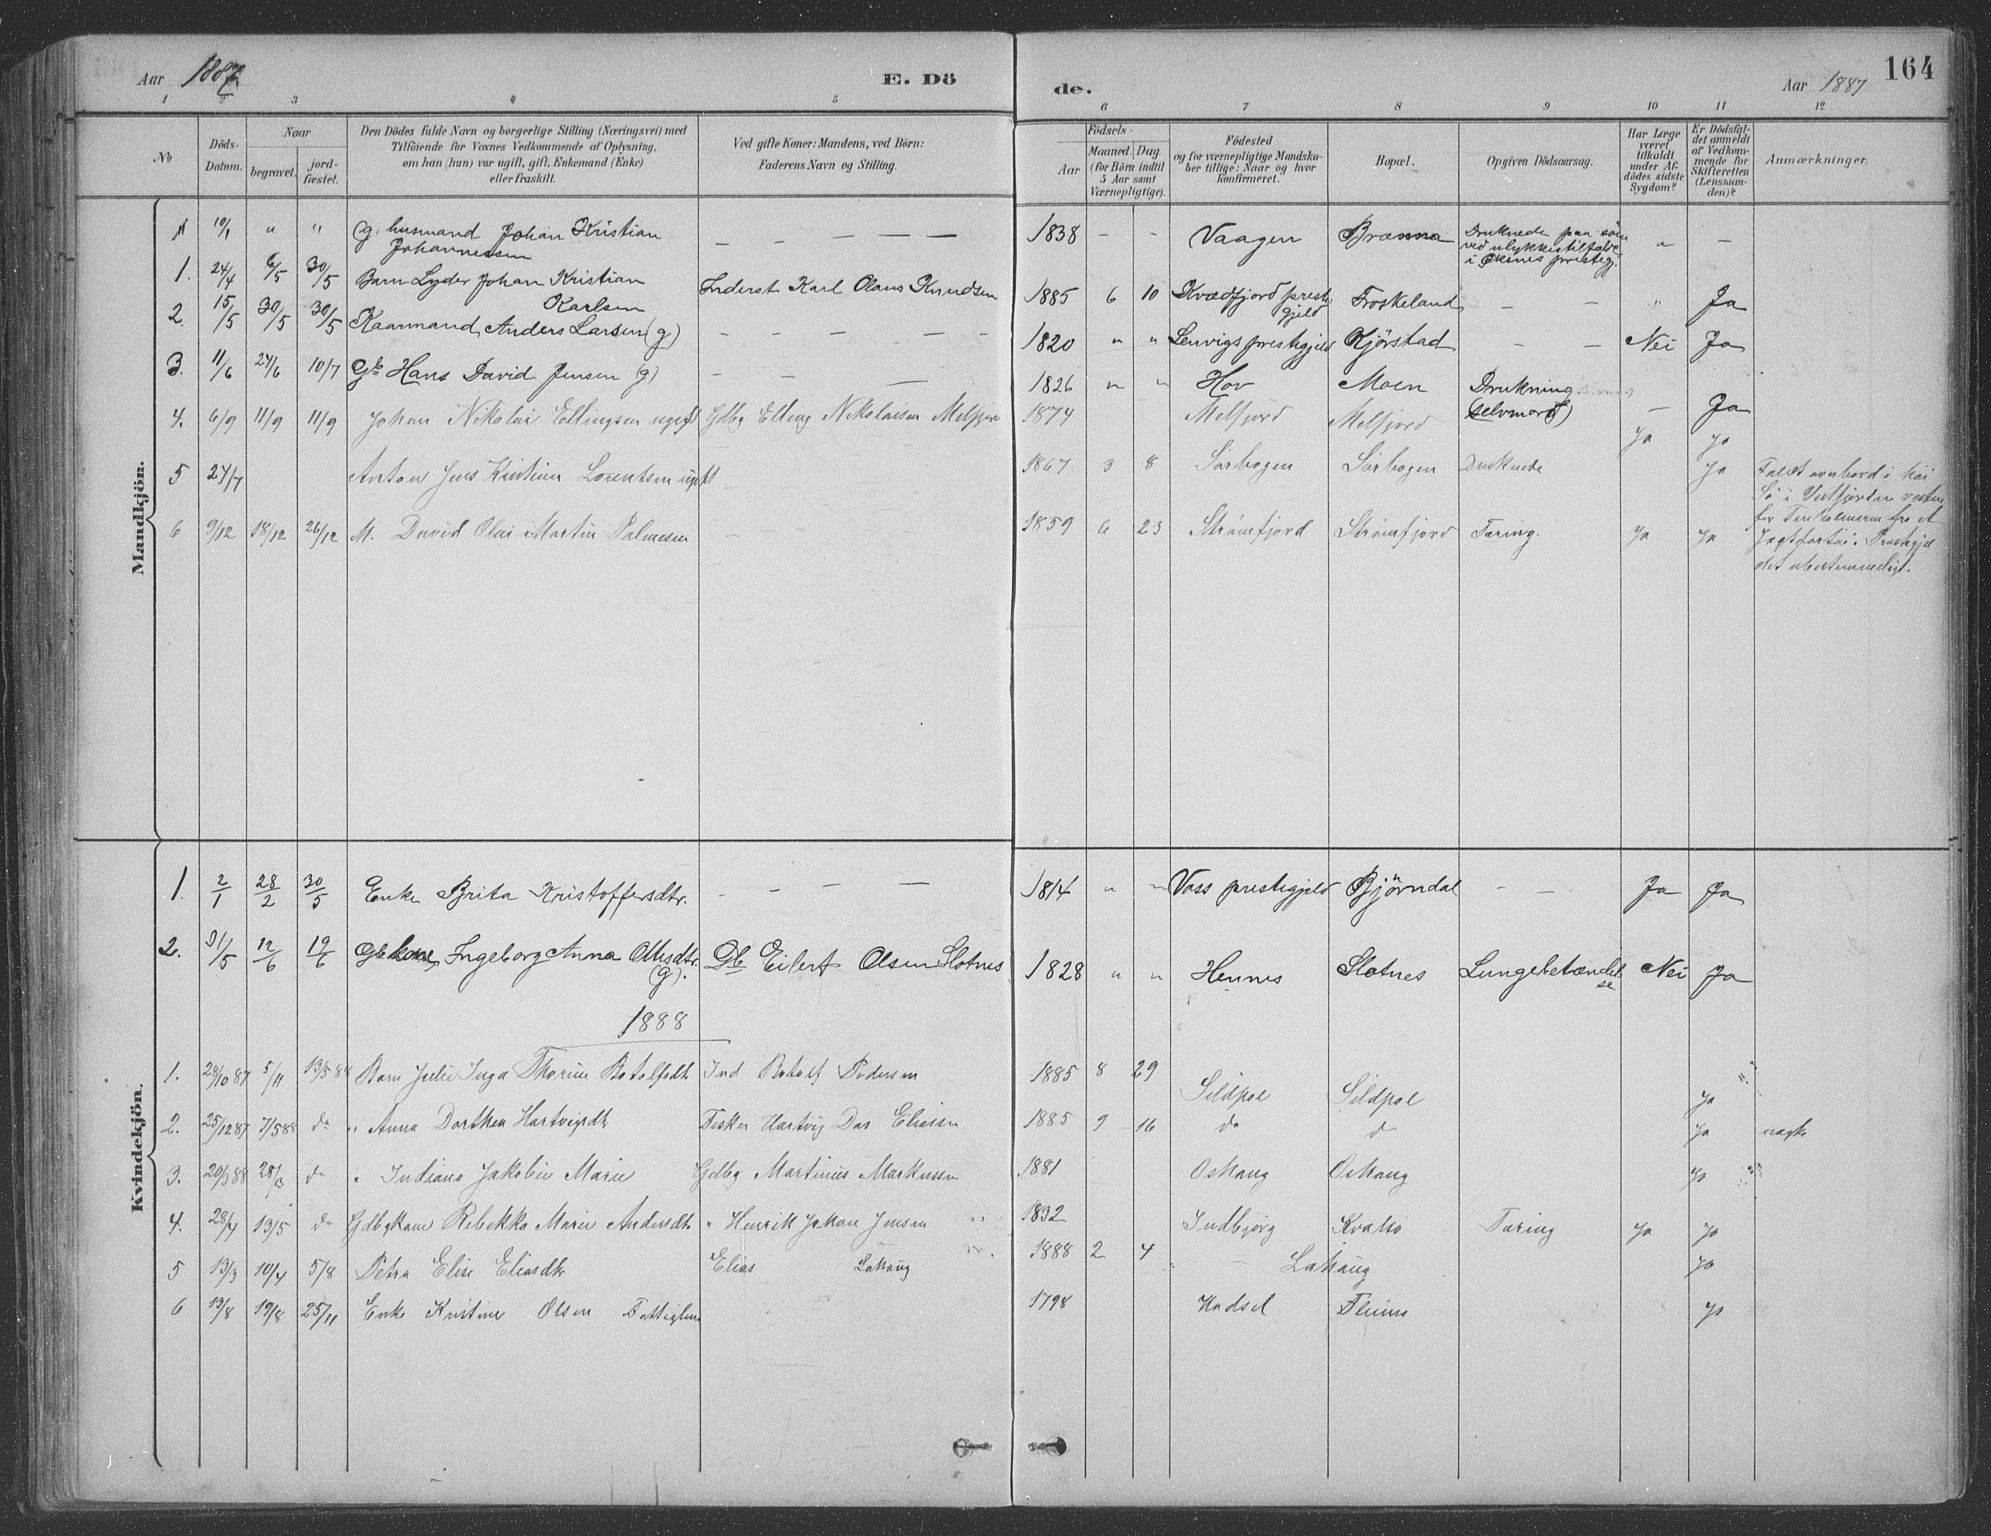 Aar 1887 E. Dö
de. Aar 1887 164
1 2 3 4 5 6 7 8 9 10 11 12
No
Döds-Datum.
Naar
begravet.
jord-fæstet.
Den Dödes fulde Navn og borgerlige Stilling (Næringsvei) med
Tilföiende for Voxnes Vedkommende af Oplysning,
om han (hun) var ugift, gift, Enkemand (Enke)
eller fraskilt.
Ved gifte Koner: Mandens, ved Börn:
Faderens Navn og Stilling.
Födsels-
Aar
Maaned. Dag.
(for Börn indtil
5 Aar samt
Værnepligtige).
Födested
og for værnepligtige Mandska-
ber tillige: Naar og hvor
konfirmeret.
Bopæl.
Opgiven Dödsaarsag.
Har Læge
været
tilkaldt
under Af-
dödes sidste
Sygdom?
Er Dödsfal-
det anmeldt
af Vedkom-
mende for
Skifteretten
(Lensman-
den)?
Anmærkninger.
Mandkjön.
1 10/1 " " (g. husmand Johan Kristian Johannessen — — — — — 1838 — — Vaagen Brænna Druknede paa söen ved ulykkestilfælde i Öksnes prestegj. " —
1. 24/4 6/5 30/5 Barn Lyder Johan Kristian Karlsen Inderst Karl Olaus Knudsen 1885 6 10 Kvædfjord prestegjeld Froskeland — — " Ja
2. 15/5 30/5 30/5 Kaarmand, Anders Larsen (g) — — — — — 1820 " " Lenvigs prestegjeld Kjörstad — — Nei Ja
3. 11/6 27/6 10/7 Gb Hans David Jensen (g) — — — 1826 " " Hov Moen Drukning (selvmord) — Ja
4. 6/9 11/9 11/9 Johan Nikolai Ellingsen ugift Gdbg Elling Nikolaisen Melfjord 1874 Melfjord Melfjord Ja Ja
5 27/7 Anton Jens Kristian Lorentsen ugift — 1867 3 8 Sörbogen Sörbogen Druknede Ja Faldt overbord i
6 9/12 18/12 26/12 M. David Olai Martin Palmesen — 1859 6 23 Strömfjord Strömfjord Tæring. Ja Ja
Kvindekjön.
1. 2/1 28/2 30/5 Enke Brita Kristoffersdtr. — — — — 1814 " " Voss prestegjeld Björndal — — Ja Ja
2. 31/5 12/6 19/6 Gbkone, Ingeborg Anna Olsdtr. (g). Gb Eilert Olsen Slotnes 1828 " " Hennes Slotnes Lungebetændelse Nei Ja
1888
1. 29/10 87 5/11 13/5 88 Barn Julie Inga Thorine Botolfsdt Ind Botolf Pedersen 1885 8 29 Sildpol Sildpol Ja
2. 25/12 87 7/5 88 do " Anna Dorthea Hartvigsdt Fisker Hartvig Das Eliassen 1885 9 16 do d Ja nøgte
3. 20/3 88 28/3 do " Indiana Jakobie Marie Gdbg Martinus Markussen 1881 Oshaug Oshaug Ja
4. 28/4 13/5 do Gdbgkone Rebekka Marie Andersdt " Henrik Johan Jensen 1832 Indbjörg Kvalsö Tæring Ja Ja
5 13/3 10/4 5/8 Petra Elise Eliasdt Elias Lahaug 1888 2 4 Lahaug Ja
6 13/8 19/8 25/11 Enke Kristine Olsen Fattiglem 1798 Hadsel Flines Ja